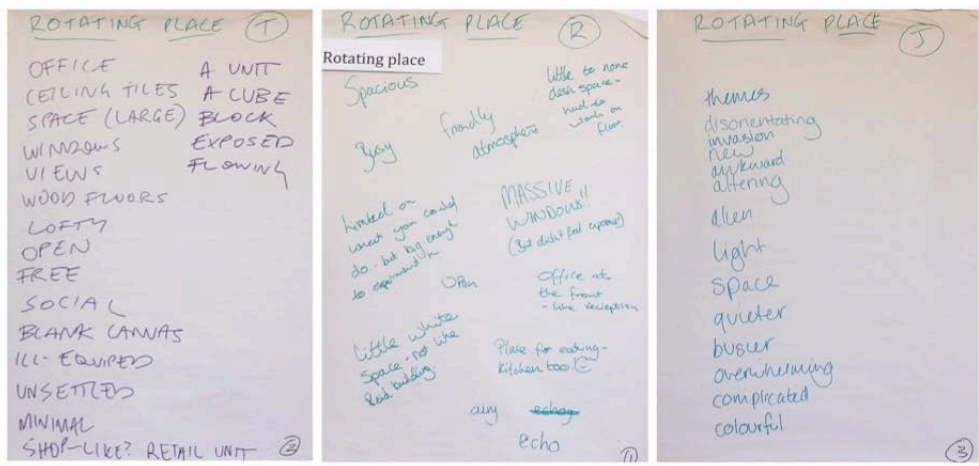 ROTATING PLACE T
OFFICE
CEILING TILES
SPACE (LARGE)
WINDOWS
VIEWS
WOOD FLOORS
LOFTY
OPEN
FREE
SOCIAL
BLANK CANVAS
ILL-EQUIPED
UNSETTLED
MINIMAL
SHOP-LIKE? RETAIL UNIT
A UNIT
A CUBE
BLOCK
EXPOSED
FLOWING
2
ROTATING PLACE R
Rotating place
Spacious
little to none
desk space -
had to
work on
floor
friendly
atmosphere
Busy
MASSIVE
WINDOWS!!
(But didn't feel exposed)
Limited on
what you could
do - but big enough
to experiment in
Open
Office at
the front
- like reception
Little white
space - not like
Reid building.
Place for eating -
kitchen too!
airy
echoy
echo
1
ROTATING PLACE J
themes
disorientating
invasion
new
awkward
altering
alien
light
space
quieter
busier
overwhelming
complicated
colourful
3